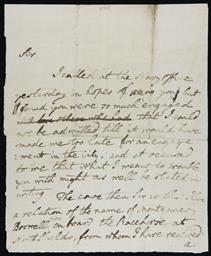 Sir
I called at the Navy office
yesterday in hopes of seeing you but
found you were so much engaged
that I could
not be admitted till it would have
made me too late for an engage
=ment in the City, and it occurred
to me that what I meant to trouble
you with might as well be stated in
writing.
The case then Sir is this: I have
a relation of the name of
Boswell on board the Racehorse at
from whom I have received
a